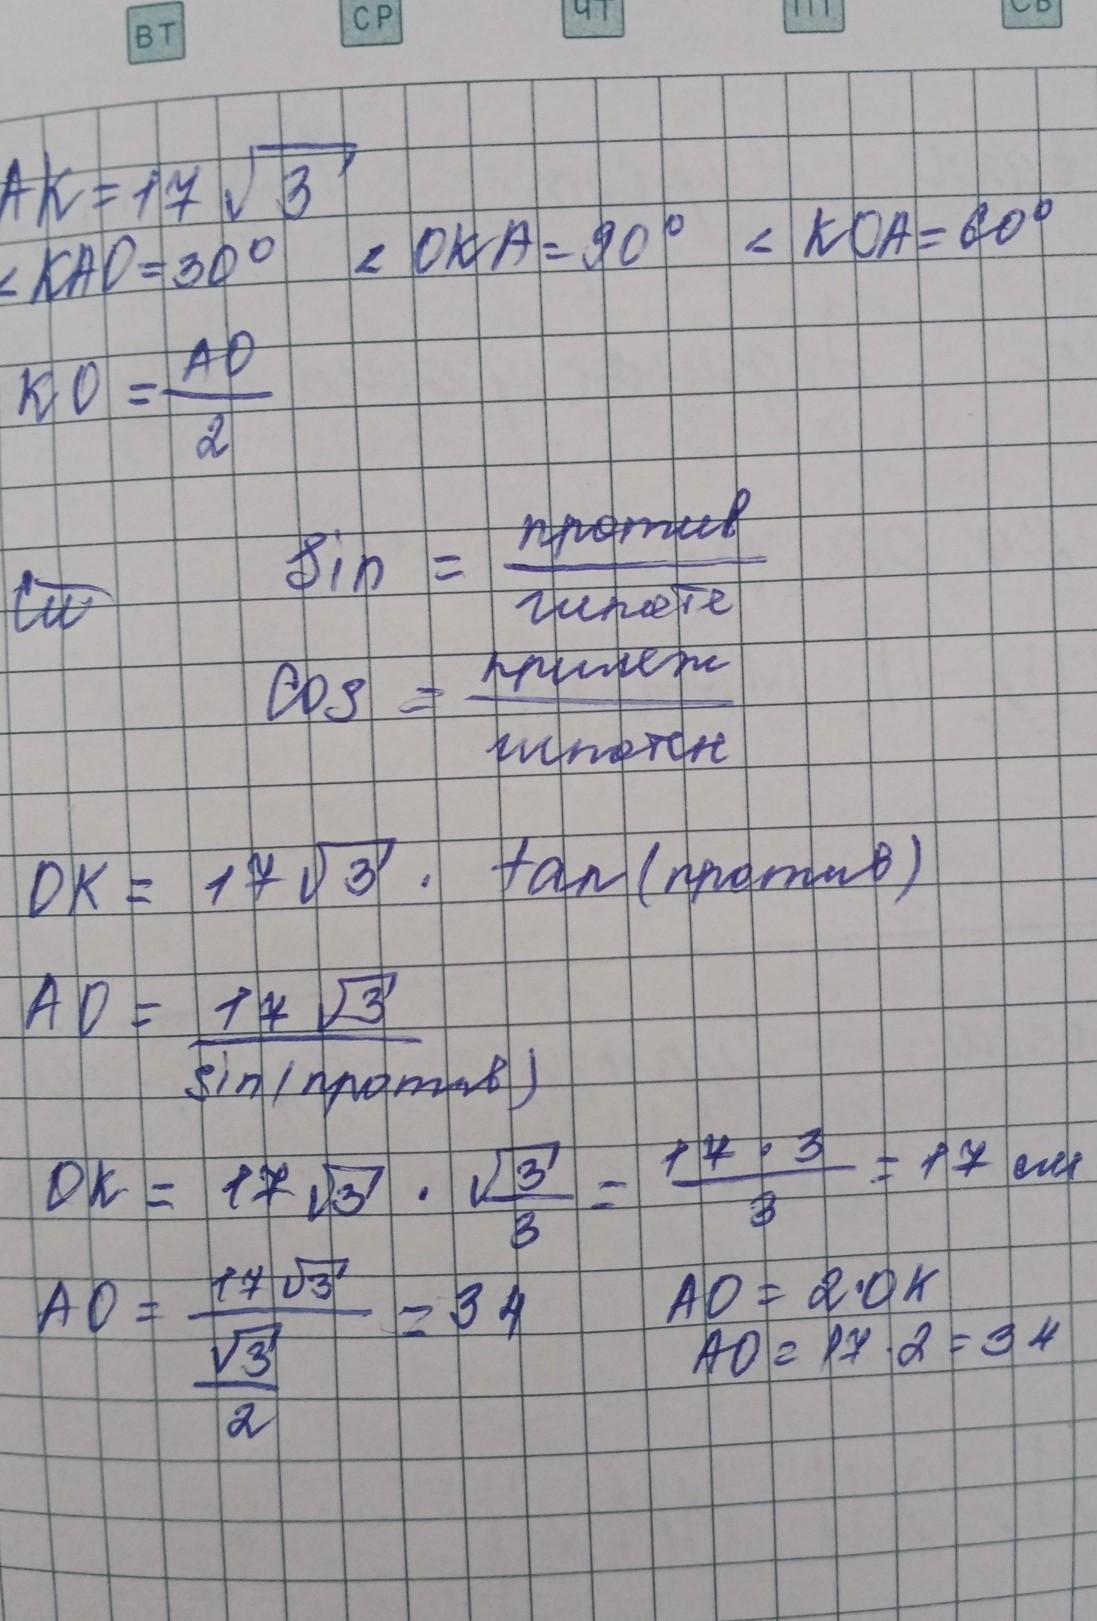 ВТ СР ЧТ ПТ СБ
AK = 17 √3
< KAO = 30° < OKA = 90° < KOA = 60°
KO = AO / 2
Sin = против / гипоте
Cos = прилеж / гипотен
OK = 17 √3 · tan (против)
AO = 17 √3 / sin (против)
OK = 17 √3 · √3 / 3 = 17 · 3 / 3 = 17 см
AO = 17 √3 / (√3 / 2) = 34
AO = 2 · OK
AO = 17 · 2 = 34